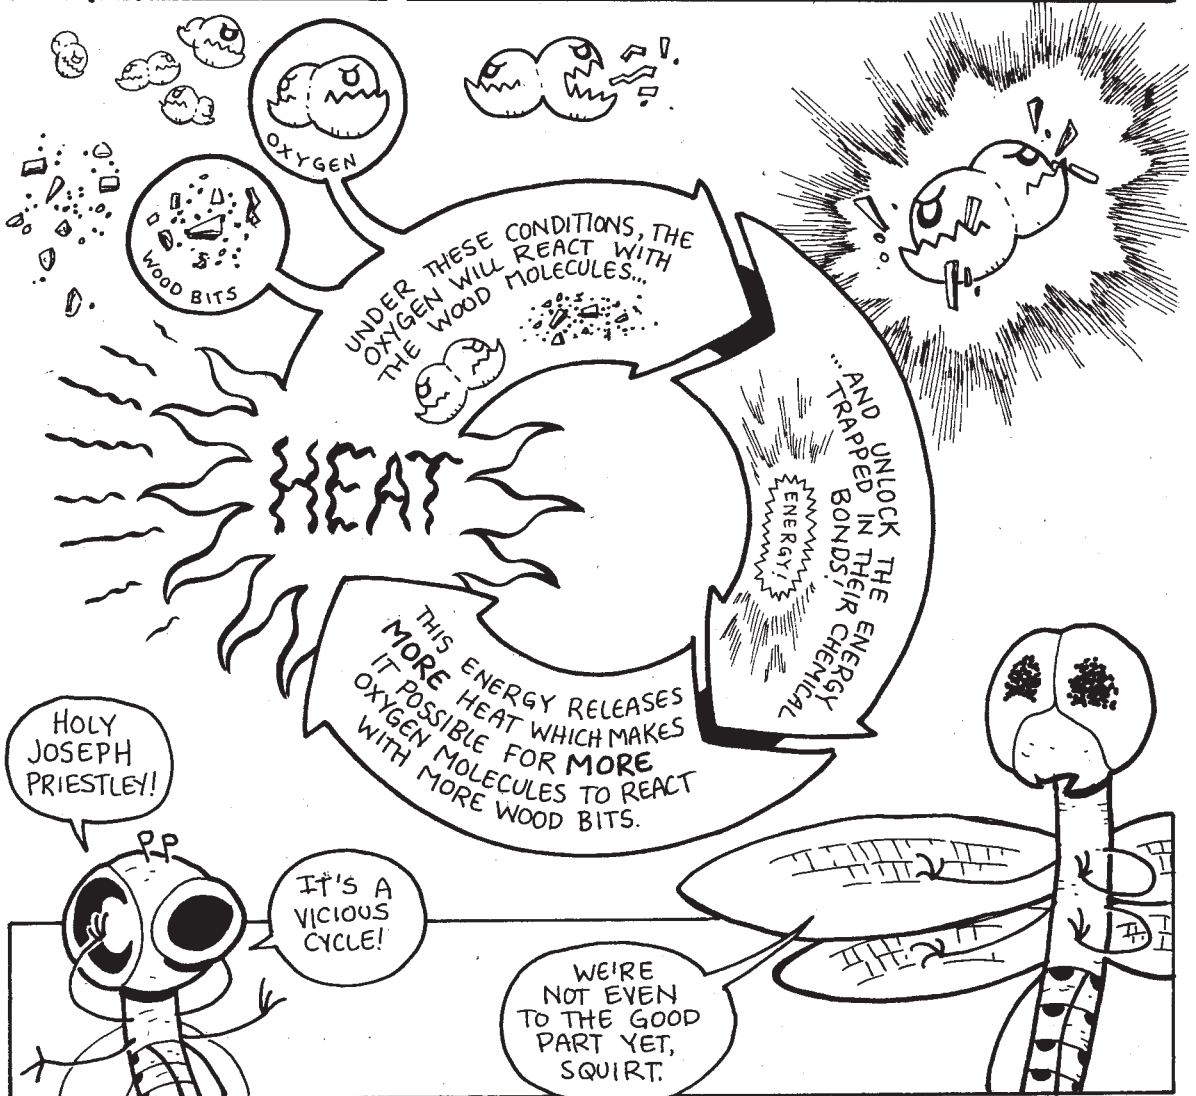 OXYGEN
WOOD BITS
UNDER THESE CONDITIONS, THE
OXYGEN WILL REACT WITH
THE WOOD MOLECULES...
...AND UNLOCK THE ENERGY
TRAPPED IN THEIR CHEMICAL
BONDS!
ENERGY!
HEAT
THIS ENERGY RELEASES
MORE HEAT WHICH MAKES
IT POSSIBLE FOR MORE
OXYGEN MOLECULES TO REACT
WITH MORE WOOD BITS.
HOLY
JOSEPH
PRIESTLEY!
IT'S A
VICIOUS
CYCLE!
WE'RE
NOT EVEN
TO THE GOOD
PART YET,
SQUIRT.